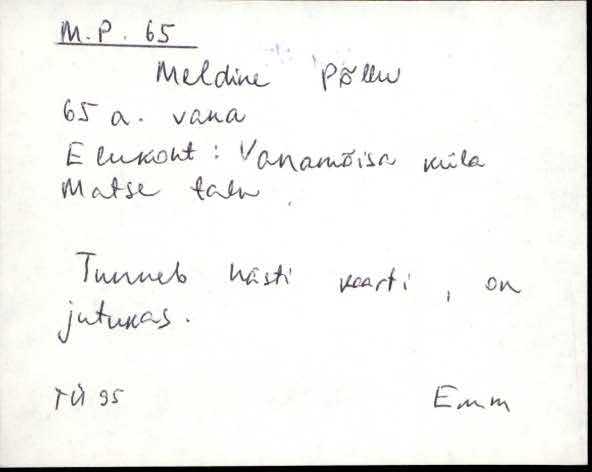 M.P. 65
Meldine Põllu
65 a. vana
Elukoht: Vanamõisa küla
Matse talu
Tunneb hästi kaarti, on
jutukas.
TÜ 95 Emm